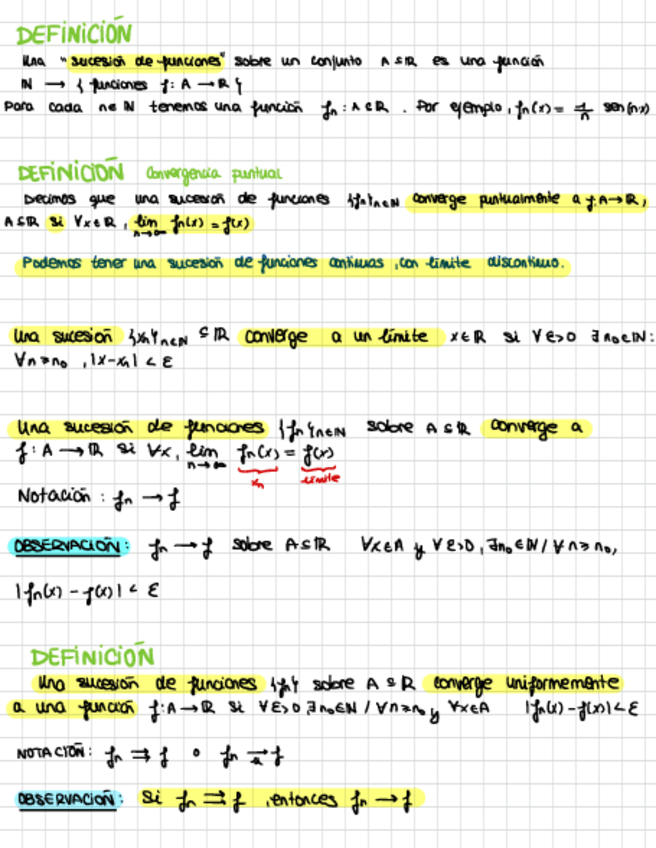 DEFINICIÓN
Una "sucesión de funciones" sobre un conjunto A ⊆ ℝ es una función
ℕ → { funciones f: A → ℝ }
Para cada n ∈ ℕ tenemos una función fₙ : A ⊂ ℝ . Por ejemplo, fₙ(x) = 1/n sen(nx)
DEFINICIÓN Convergencia puntual
Decimos que una sucesión de funciones {fₙ}ₙ∈ℕ converge puntualmente a f: A → ℝ,
A ⊆ ℝ si ∀x ∈ ℝ, lim n→∞ fₙ(x) = f(x)
Podemos tener una sucesión de funciones continuas , con límite discontinuo.
Una sucesión {xₙ}ₙ∈ℕ ⊆ ℝ converge a un límite x ∈ ℝ si ∀ ε>0 ∃ n₀ ∈ ℕ :
∀n ≥ n₀ , |x-xₙ| < ε
Una sucesión de funciones {fₙ}ₙ∈ℕ sobre A ⊆ ℝ converge a
f : A → ℝ si ∀x, lim n→∞ fₙ(x) = f(x)
xₙ límite
Notación : fₙ → f
OBSERVACIÓN: fₙ → f sobre A ⊆ ℝ ∀x ∈ A y ∀ ε>0, ∃n₀ ∈ ℕ / ∀ n ≥ n₀,
|fₙ(x) - f(x)| < ε
DEFINICIÓN
Una sucesión de funciones {fₙ} sobre A ⊆ ℝ converge uniformemente
a una función f: A → ℝ si ∀ ε>0 ∃ n₀ ∈ ℕ / ∀n ≥ n₀ y ∀x ∈ A |fₙ(x) - f(x)| < ε
NOTACIÓN: fₙ ⇉ f o fₙ ⇉ f
OBSERVACIÓN: Si fₙ ⇉ f , entonces fₙ → f